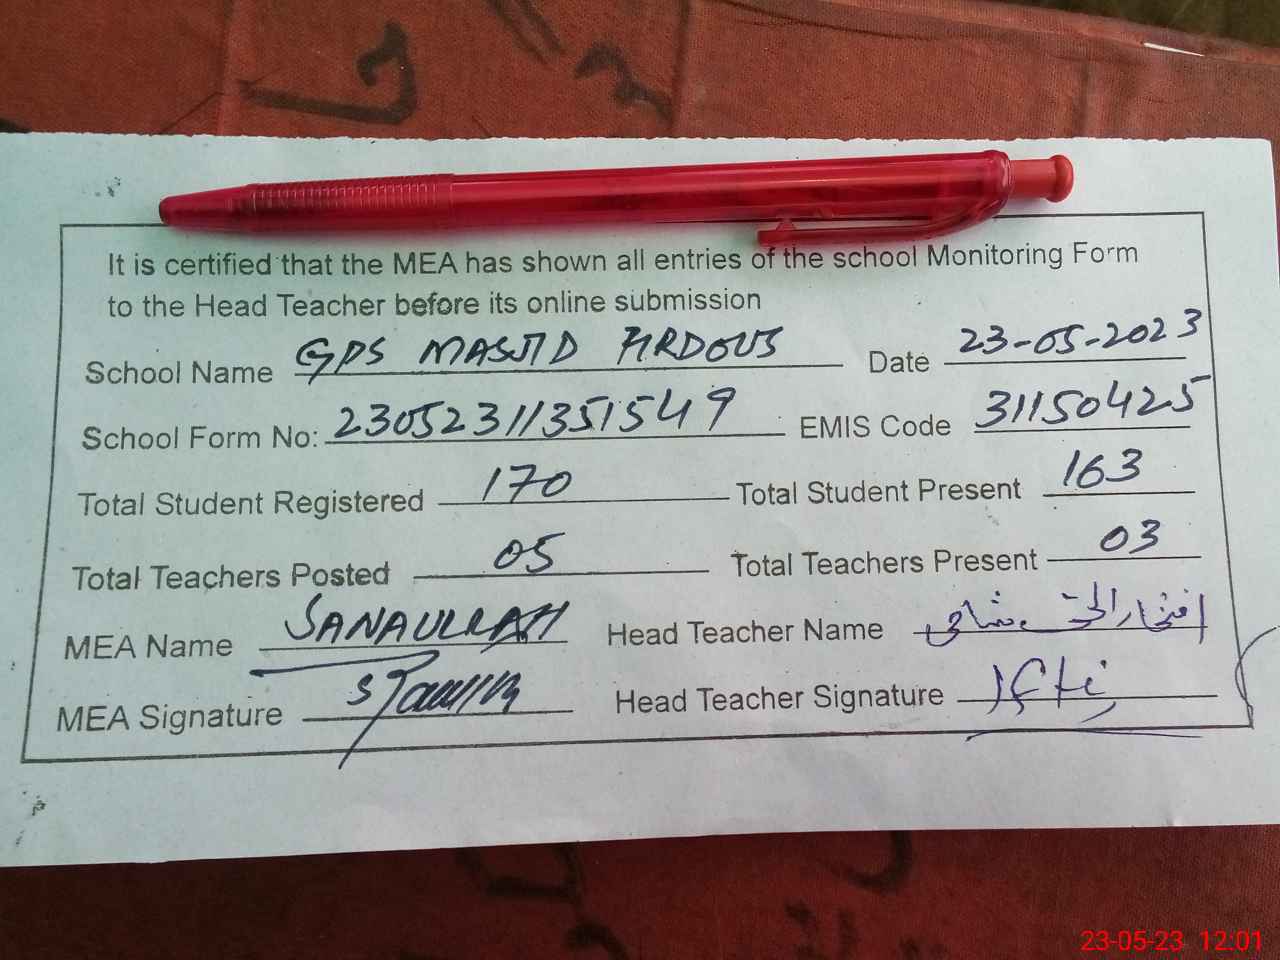 It is certified that the MEA has shown all entries of the school Monitoring Form
to the Head Teacher before its online submission
School Name GPS MASJID FIRDOUS Date 23-05-2023
School Form No: 2305231135 1549 EMIS Code 31150425
Total Student Registered 170 Total Student Present 163
Total Teachers Posted 05 Total Teachers Present 03
MEA Name SANAULLAH Head Teacher Name افتخار الحق
MEA Signature Head Teacher Signature Ifti
23-05-23 12:01